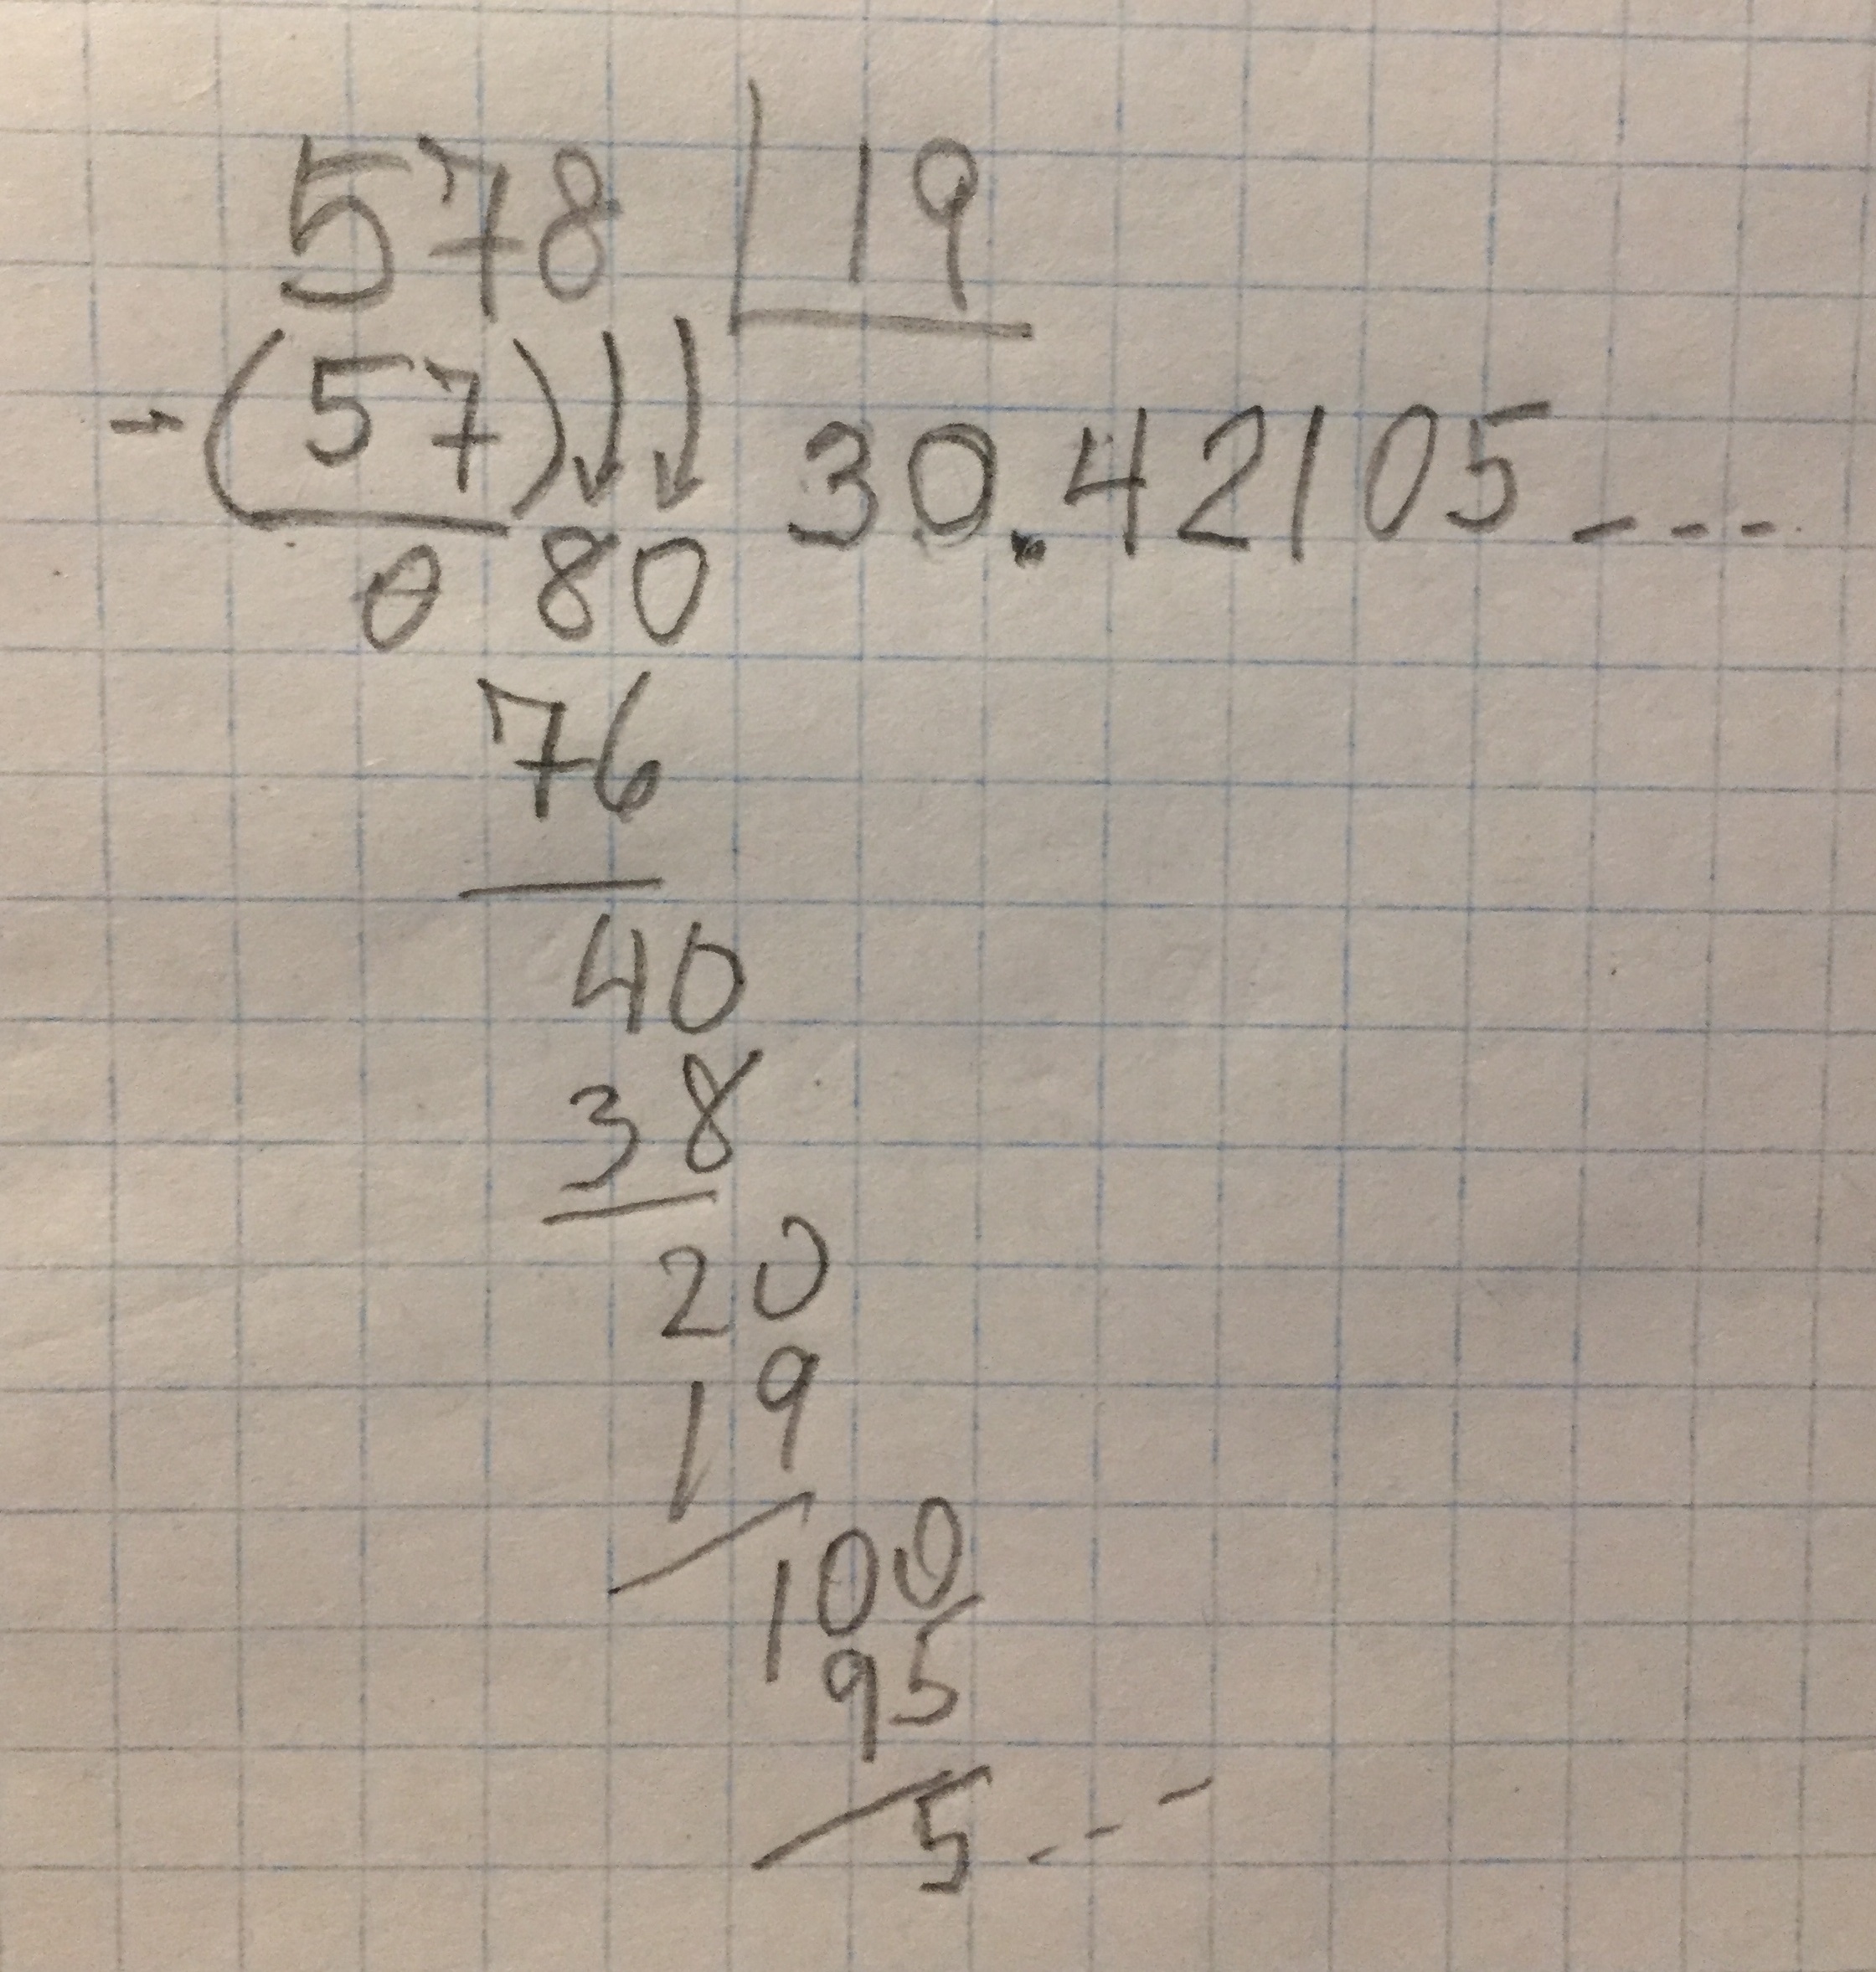 578 19
-(57) 30.42105----
0 80
76
40
38
20
19
100
95
5---